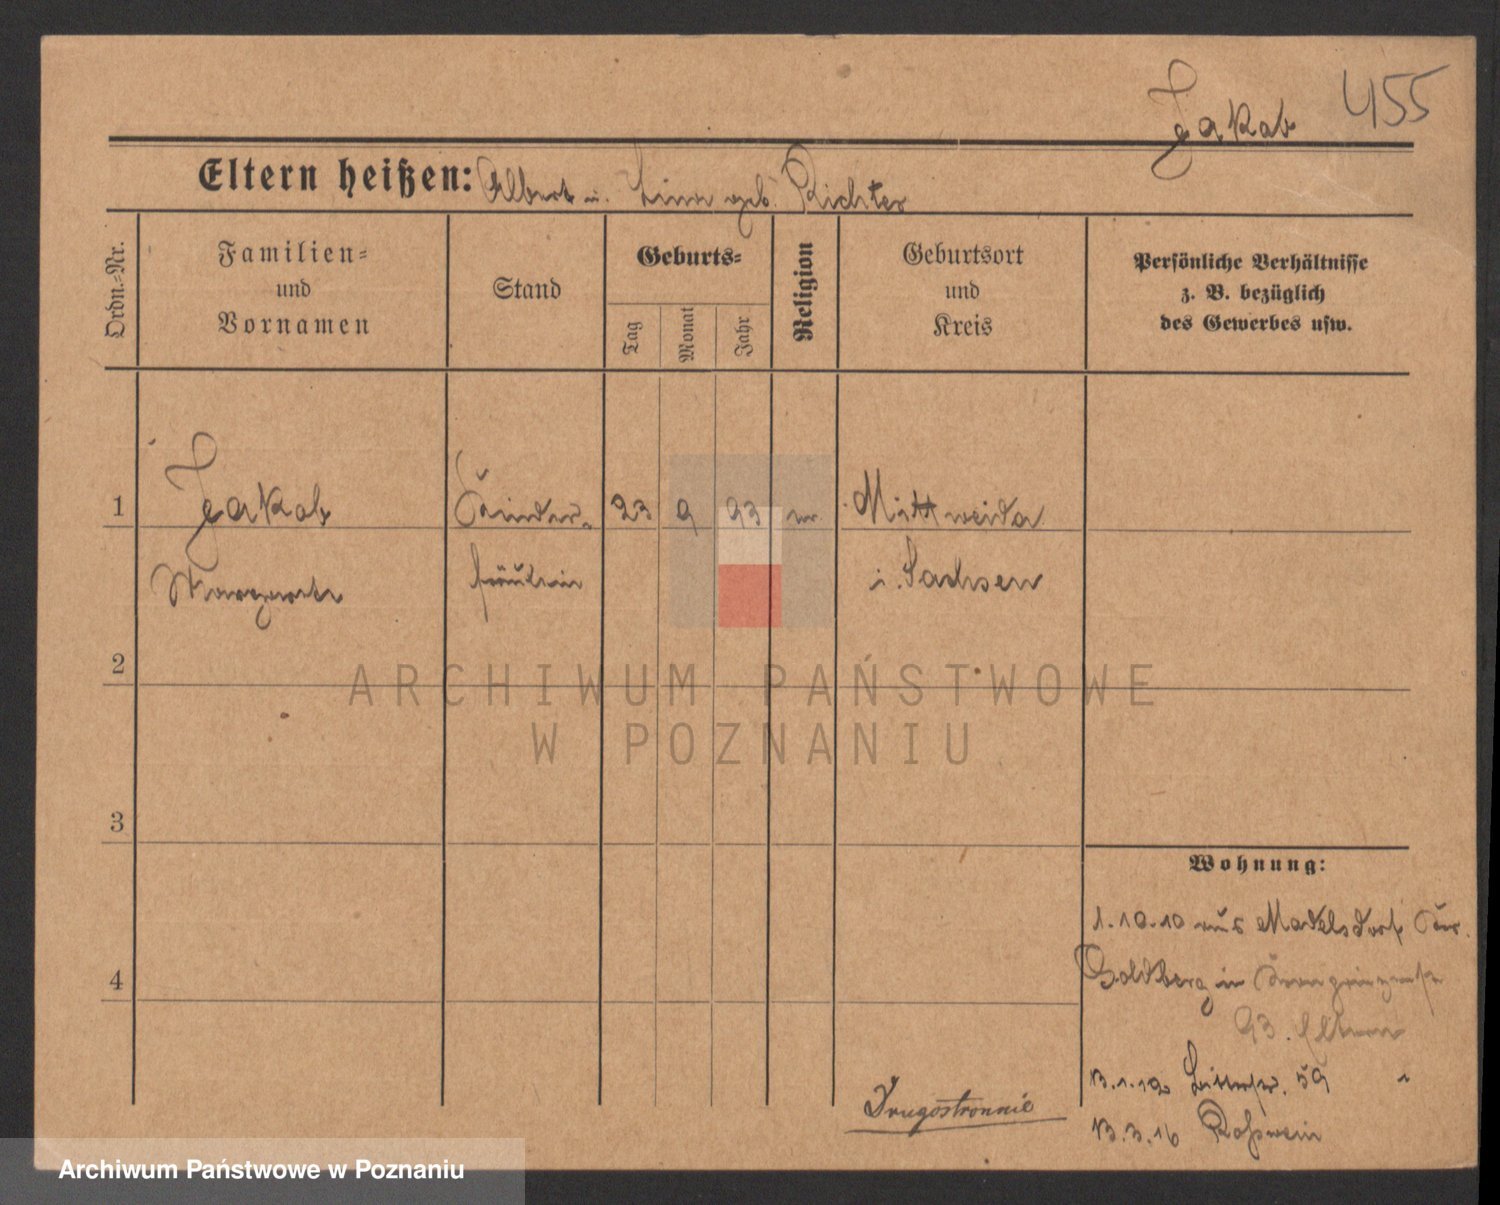 Jakob 455
Eltern heißen: Albert u. Lina geb. Richter
Ordn.-Nr.
Familien-
und
Vornamen
Stand
Geburts-
Tag
Monat
Jahr
Religion
Geburtsort
und
Kreis
Persönliche Verhältnisse
z. B. bezüglich
des Gewerbes usw.
1 Jakob Kinder- 23 9 93 Mittweida
Margarete fräulein i. Sachsen
2
3
4
Wohnung:
1.10.10 aus Madelsdorf
Goldberg in Kronprinzenstr
93. Eltern
13.1.12 59
13.3.16 Roßwein
Drugostronnie
ARCHIWUM PAŃSTWOWE
W POZNANIU
Archiwum Państwowe w Poznaniu